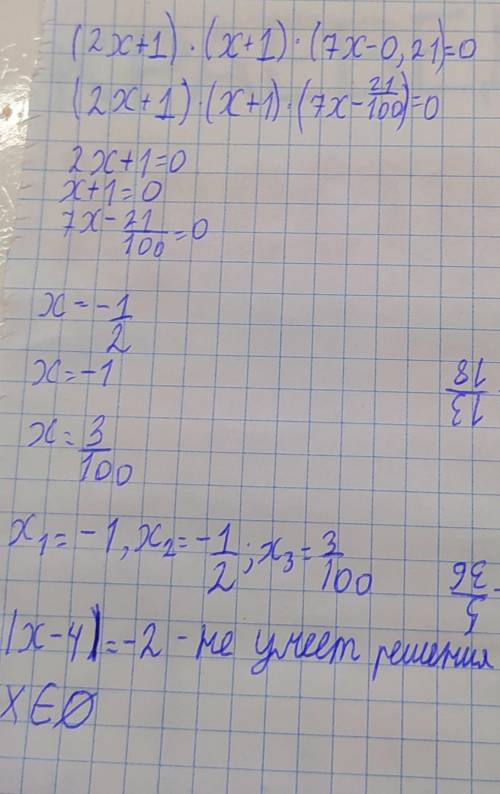 (2x+1)·(x+1)·(7x-0,21)=0
(2x+1)·(x+1)·(7x-21/100)=0
2x+1=0
x+1=0
7x-21/100=0
x=-1/2
x=-1
13/18
x=3/100
x₁=-1, x₂=-1/2; x₃=3/100
5/36
|x-4|=-2 - не имеет решения
x∈∅